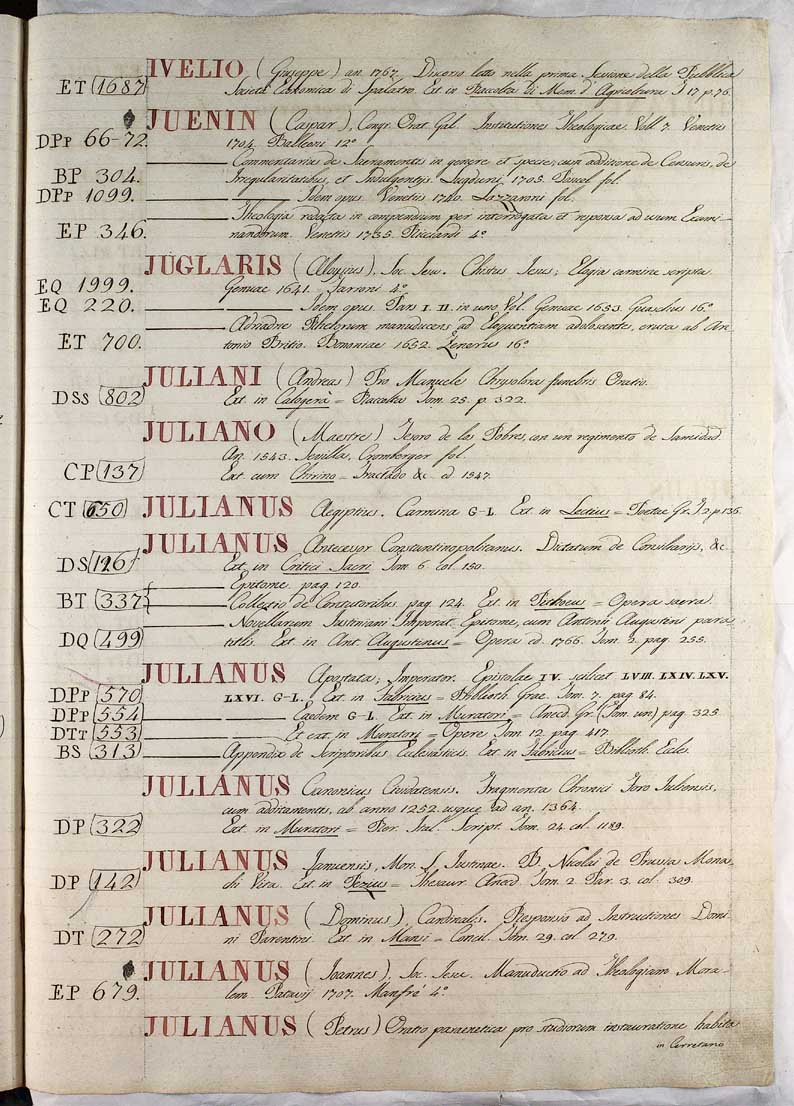 IVELIO (Giuseppe) an. 1767. Discorso letto nella prima Sessione della Pubblica
ET 1687 Società Economica di Spalatro. Ext. in Raccolta di Mem. d'Agricoltura T. 17 p. 76.
JUENIN (Caspar), Congr. Orat. Gal. Institutiones Theologicae. Voll. 7. Venetiis
DPp 66-72. 1704. Balleoni 12°
Commentarius de Sacramentis in genere et specie, cum additione de Censuris, de
BP 304. Irregularitatibus, et Indulgentijs. Lugduni, 1705. fol.
DPp 1099. Idem opus. Venetiis 1740. Lazzaroni fol.
Theologia redacta in compendium per interrogata et reponsa ad usum Exami-
EP 346. nandorum. Venetiis 1735. Ricciardi 4°
JUGLARIS (Aloysius), Soc. Iesu. Chistus Iesus; Elogia carmine scripta
EQ 1999. Genuae 1641. Farroni 4°
EQ 220. Idem opus. Pars I. II. in uno Vol. Genuae 1653. Guaschus 16°
Ariadne Rhetorum manuducens ad Eloquentiam adolescentes, eruta ab An-
ET 700. tonio Britio. Bononiae 1652. Zenerus 16°
JULIANI (Andreas) Pro Manuele Chrysolora funebris Oratio.
DSS 802 Ext. in Calogerà = Raccolta Tom. 25. p. 322.
JULIANO (Maestre) Tesoro de los Pobres, con un regimento de Sanidad.
An. 1543. Sevilla, Cromberger fol.
CP 137 Ext. cum Chirino = Tractado &c. ed. 1547.
CT 650 JULIANUS Aegiptius. Carmina G-L. Ext. in Lectius = Poetae Gr. T 2 p. 136.
JULIANUS Antecesor Constantinopolitanus. Dictatum de Consiliarijs, &c.
DS 126 Ext. in Critici Sacri Tom. 6. col. 150.
Epitome. pag. 120.
BT 337 Collectio de Contutoribus pag. 124. Ext. in Pithoeus = Opera sacra.
Novellarum Justiniani Imperat. Epitome, cum Antonii Augustini para-
DQ 499 titlis. Ext. in Ant. Augustinus = Opera ed. 1766. Tom. 2. pag. 255.
JULIANUS Apostata; Imperator. Epistolae IV. scilicet LVIII. LXIV. LXV.
DPp 570 LXVI. G-L. Ext. in Fabricius = Biblioth. Grae. Tom. 7. pag. 84.
DPp 554 Eaedem G-L. Ext. in Muratori = Anecd. Gr. (Tom. un) pag. 325.
DTt 553 Et ext. in Muratori = Opere Tom. 12. pag. 417.
BS 313 Appendix de Scriptoribus Eclesiasticis. Ext. in Fabricius = Biblioth. Eccles.
JULIANUS Canonicus Civdatensis. Fragmenta Chronici Foro Juliensis,
cum additamentis, ab anno 1252. usque ad an. 1364.
DP 322 Ext. in Muratori = Rer. Ital. Script. Tom. 24. col. 1189.
JULIANUS Januensis, Mon. S. Justinae. B. Nicolai de Prussia Mona-
DP 142 chi Vita. Ext. in Pezius = Thesaur. Anecd. Tom. 2. Par. 3. col. 309.
JULIANUS (Dominus), Cardinalis. Responsio ad Instructiones Domi-
DT 272 ni Parentini. Ext. in Mansi = Concil. Tom. 29. col. 279.
JULIANUS (Ioannes), Soc. Iesu. Manuductio ad Theologiam Mora-
EP 679. lem. Patavij 1707. Manfré 4°
JULIANUS (Petrus) Oratio paraenetica pro studiorum instauratione habita
in Cerretano